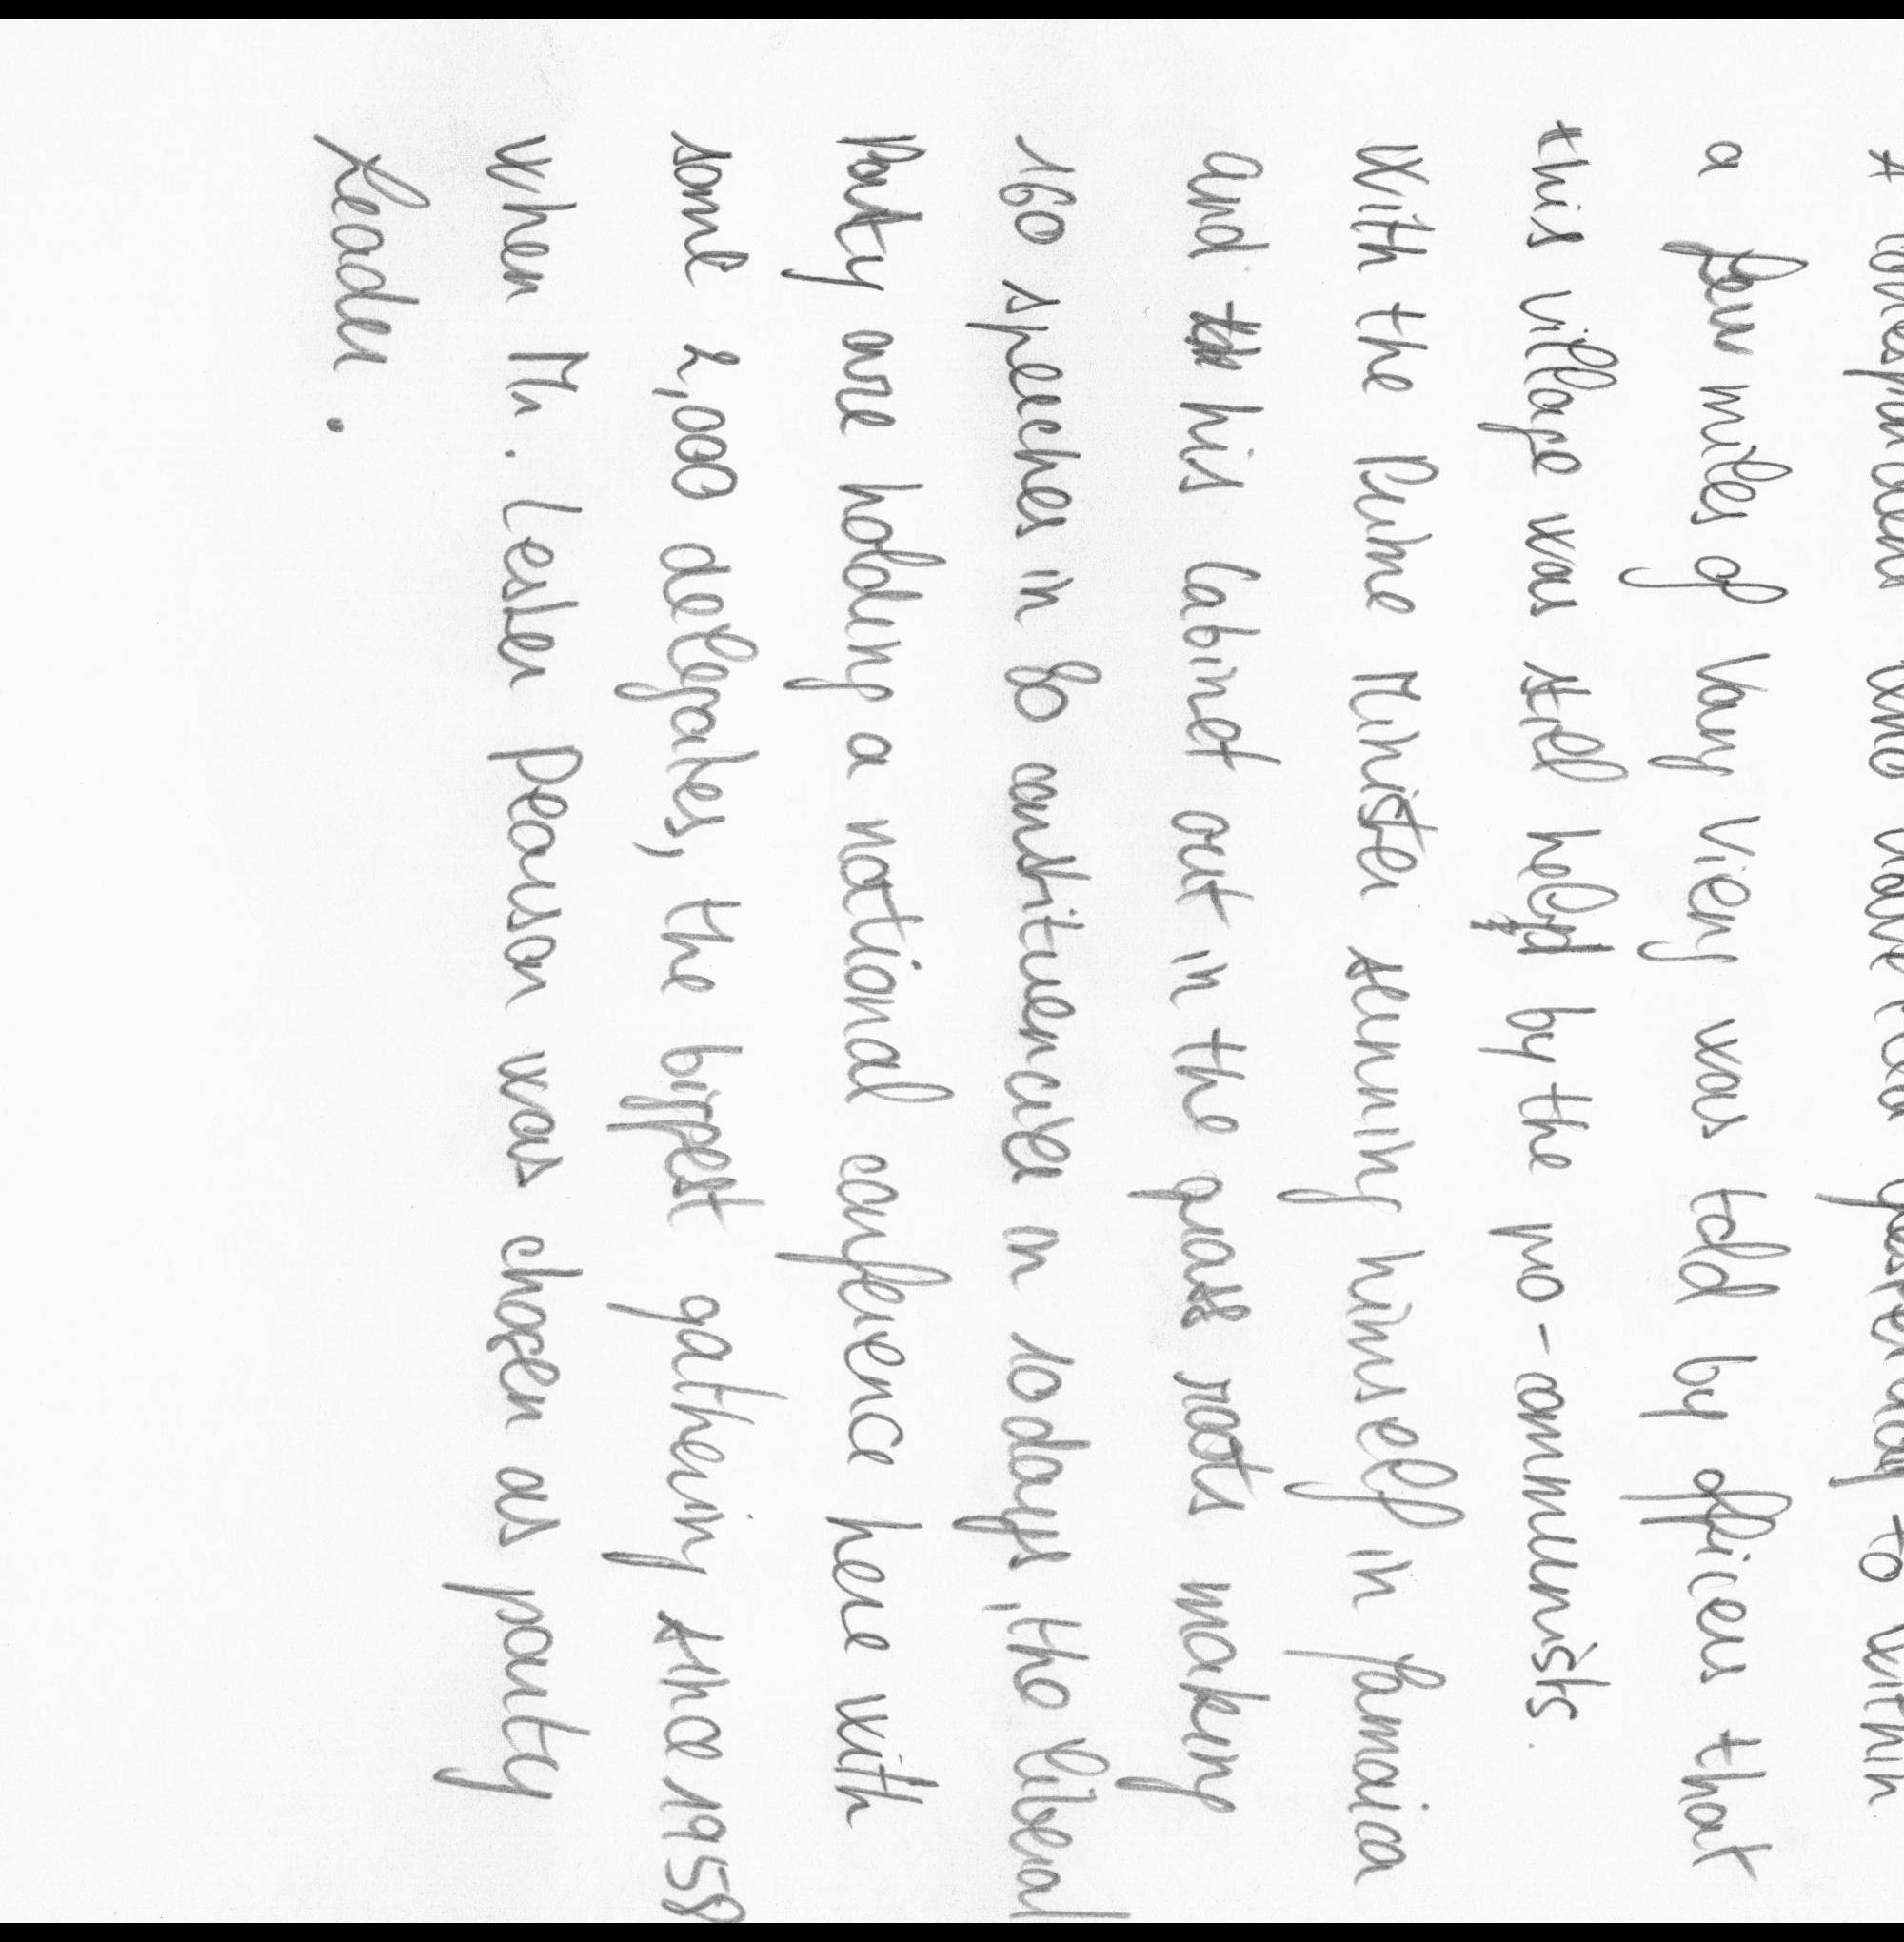 A correspondent who drove yesterday to within
a few miles of Vang Vieng was told by officers that
this village was still held by the pro-communists.
With the Prime Minister sunning himself in Jamaica
and his Cabinet out in the grass roots making
160 speeches in 80 constituencies in 10 days, the liberal
Party are holding a national conference here with
some 2,000 delegates, the biggest gathering since 1958
when Mr. Lester Pearson was chosen as party
Leader.